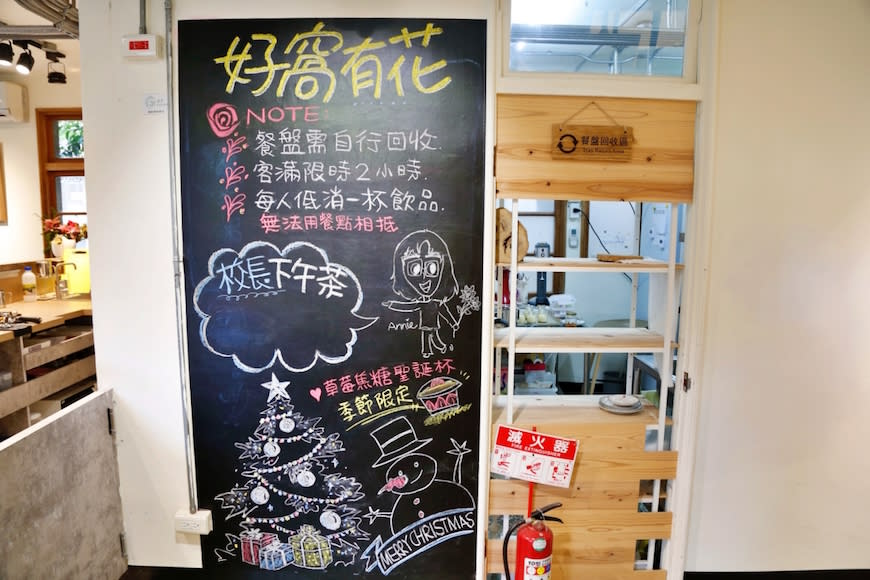 好窩有花
NOTE:
餐盤需自行回收.
客滿限時2小時.
每人低消一杯飲品.
無法用餐點相抵
校長下午茶
Annie
草莓焦糖聖誕杯
季節限定
MERRY CHRISTMAS
餐盤回收區
滅火器
FIRE EXTINGUISHER